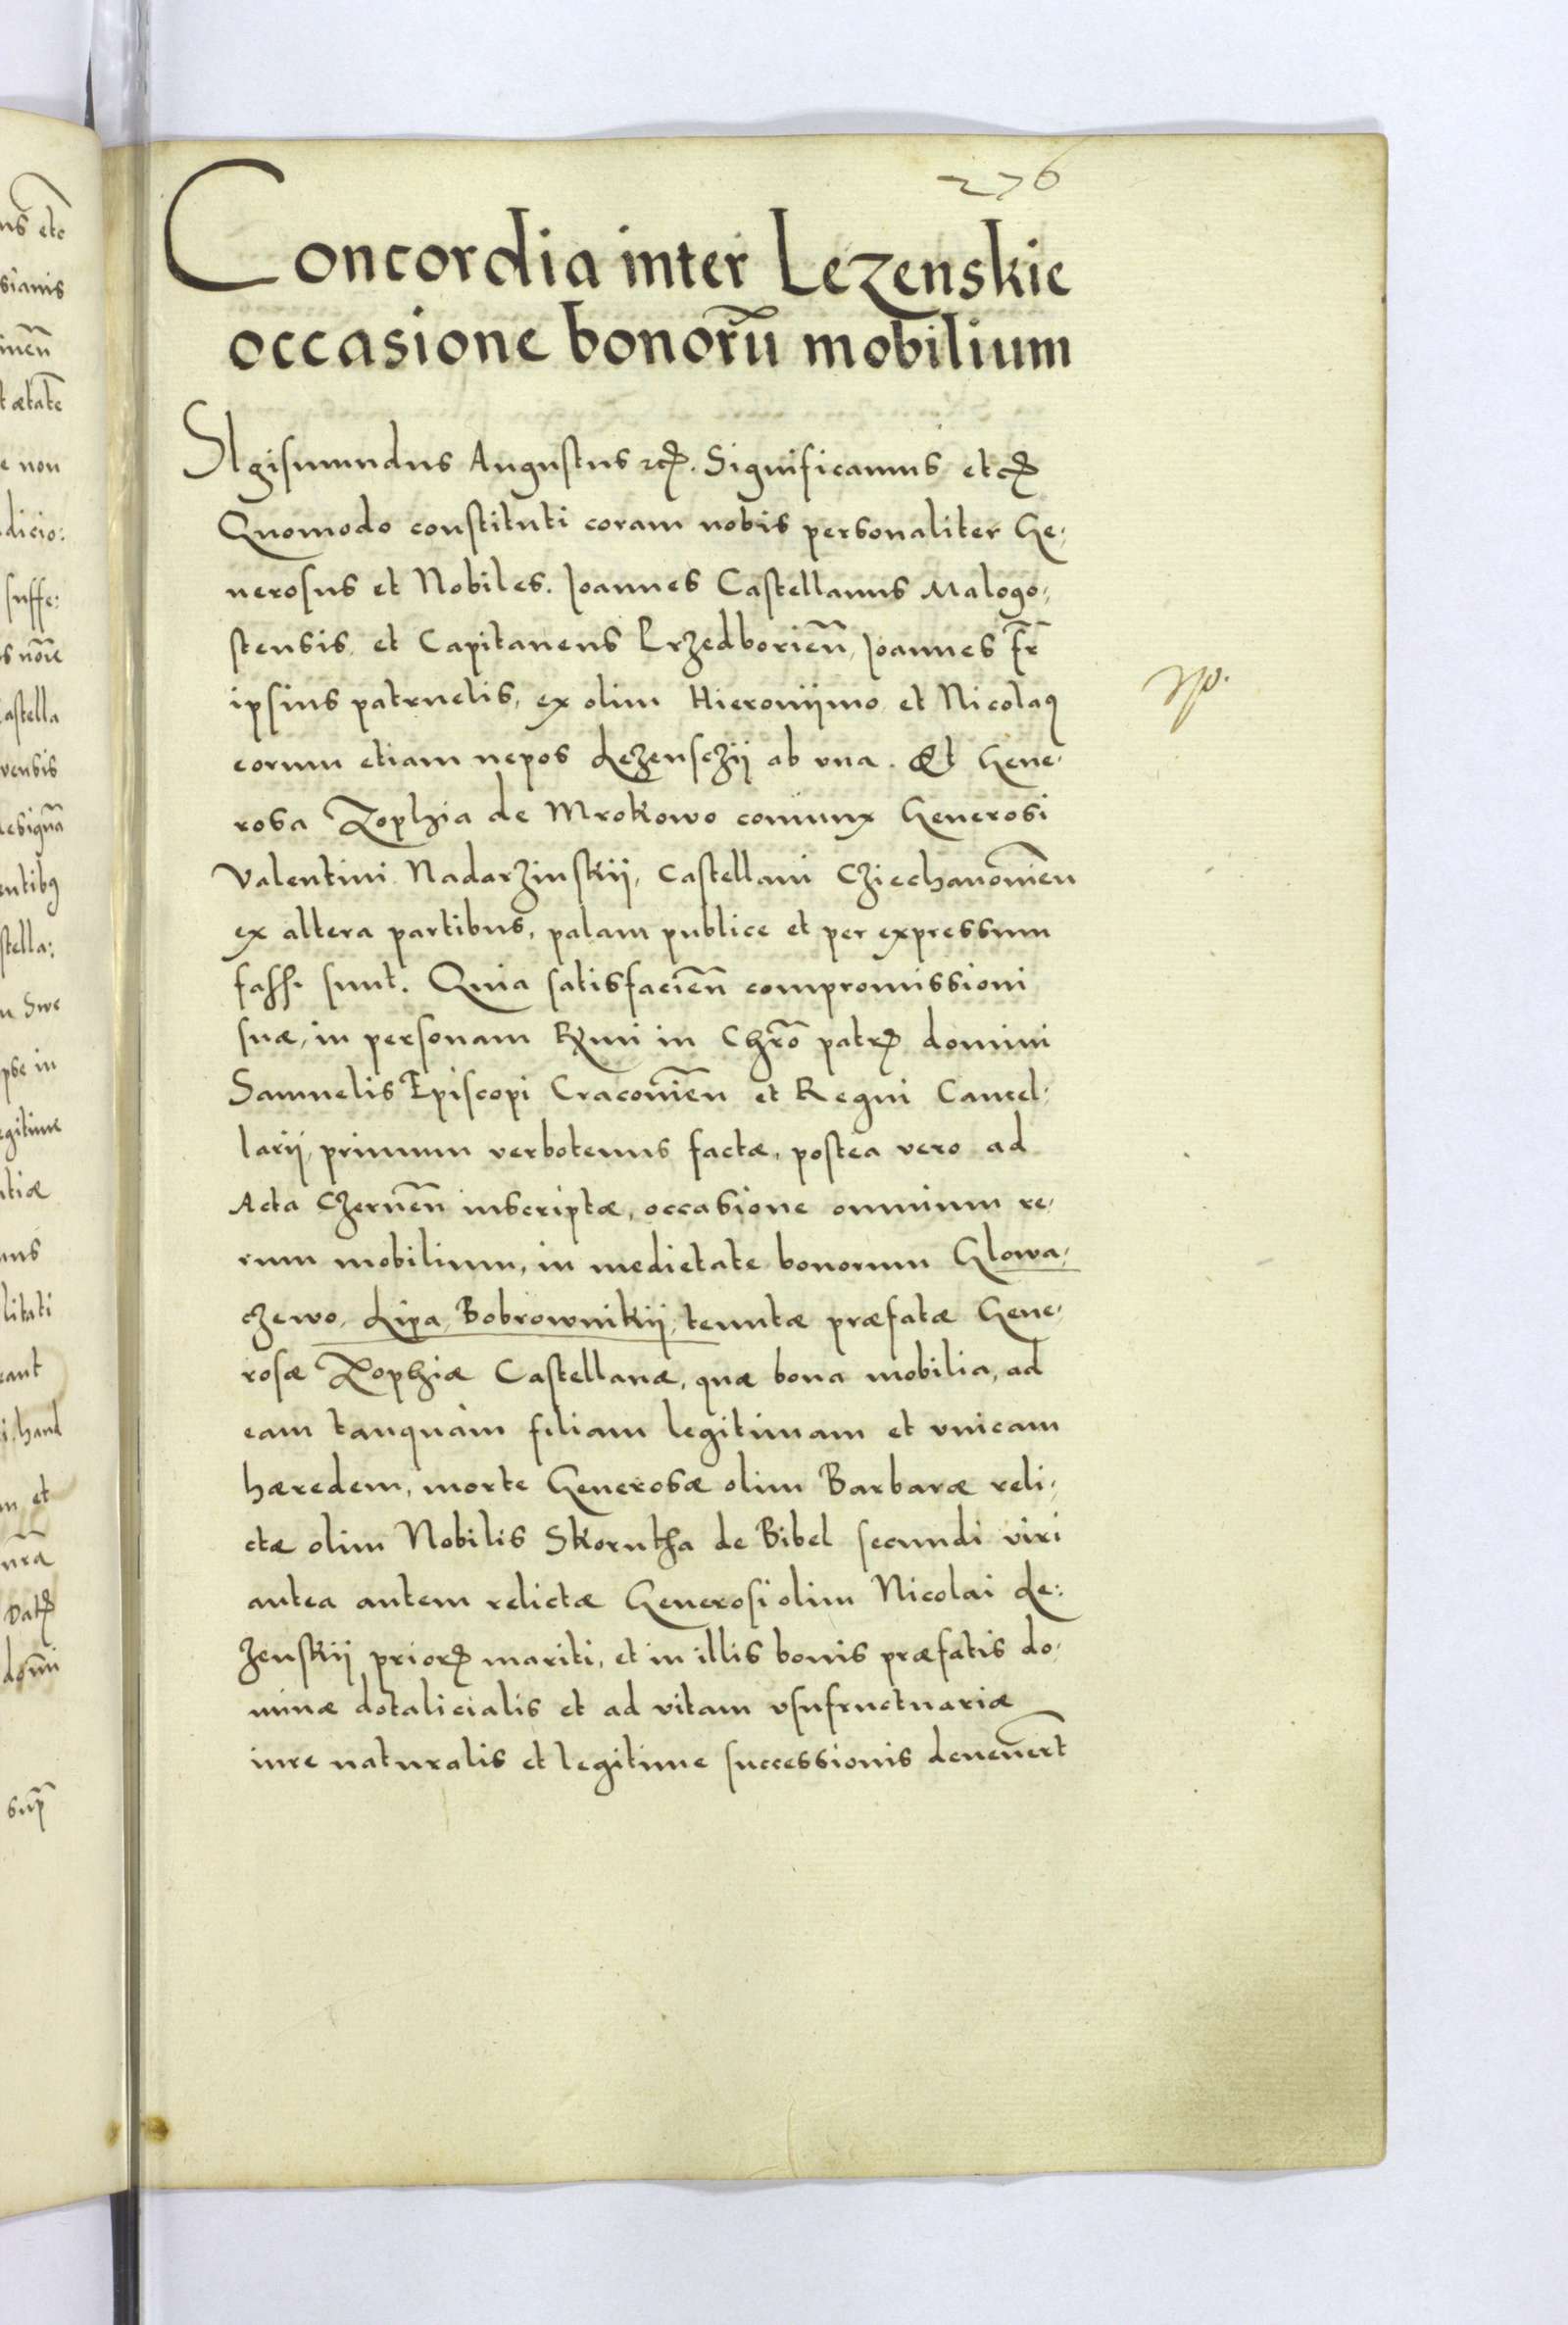 276
Concordia inter Lezenskie
occasione bonorũ mobilium
SIgismundus Augustus etc. Significamus etc
Quomodo constituti coram nobis personaliter Ge,
nerosus et Nobiles. Ioannes Castellanus Malogo,
stensis, et Capitaneus Przedborieñ, Ioannes Fr̃
ipsius patruelis, ex olim Hieronijmo et Nicolaꝰ
eorum etiam nepos Lezensczij ab vna. Et Gene,
rosa Zophia de Mrokowo coniunx Generosi
Valentini Nadarzinskij, Castellani Cziechanovieñ
ex altera partibus, palam publice et per expressum
fassi sunt. Quia satisfacieñ compromissioni
suæ, in personam Rx̃mi in Chr̃o patris domini
Samuelis Episcopi Cracovieñ et Regni Cancel,
larij, primum verbotenus factæ, postea vero ad
Acta Czerneñ inscriptæ, occasione omnium re,
rum mobilium, in medietate bonorum Glowa,
czewo, Lipa, Bobrownikij, tentæ præfatæ Gene,
rosæ Zophiæ Castellanæ, quæ bona mobilia, ad
eam tanquàm filiam legitimam et vnicam
hæredem, morte Generosæ olim Barbaræ reli,
ctæ olim Nobilis Skorutha de Bibel secundi viri
antea autem relictæ Generosi olim Nicolai Le:
zenskij prioris mariti, et in illis bonis præfatis do,
minæ dotalicialis et ad vitam vsufructuariæ
iure naturalis et legitime successionis devener̃t